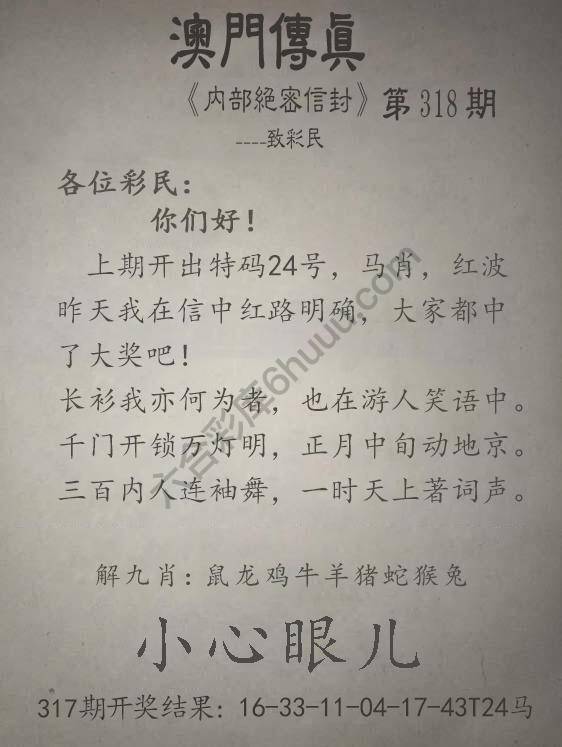 澳門傳眞
《内部絕密信封》第318期
----致彩民
各位彩民：
你们好！
上期开出特码24号，马肖，红波
昨天我在信中红路明确，大家都中
了大奖吧！
长衫我亦何为者，也在游人笑语中。
千门开锁万灯明，正月中旬动地京。
三百内人连袖舞，一时天上著词声。
六合彩库6huuu.com
解九肖：鼠龙鸡牛羊猪蛇猴兔
小心眼儿
317期开奖结果：16-33-11-04-17-43T24马